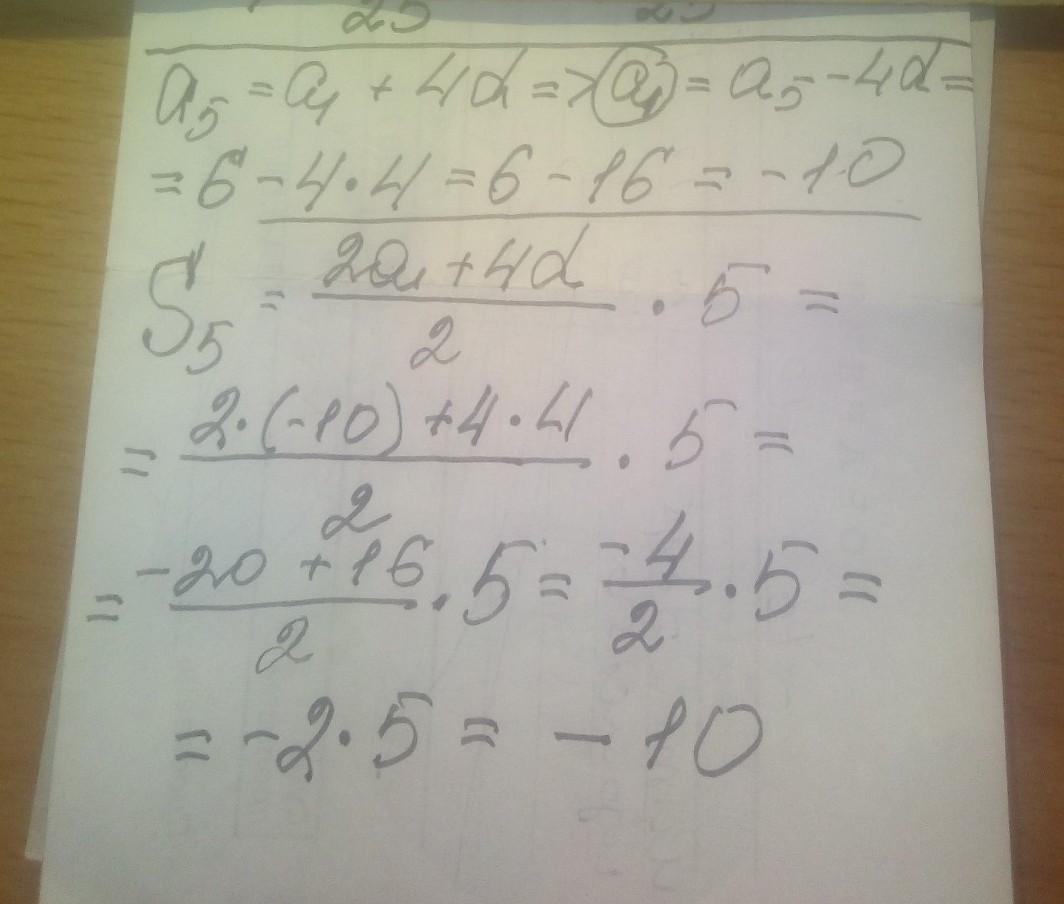 25 25
a₅ = a₁ + 4d => a₁ = a₅ - 4d =
= 6 - 4·4 = 6 - 16 = -10
S₅ = (2a₁ + 4d)/2 · 5 =
= (2·(-10) + 4·4)/2 · 5 =
= (-20 + 16)/2 · 5 = -4/2 · 5 =
= -2·5 = -10